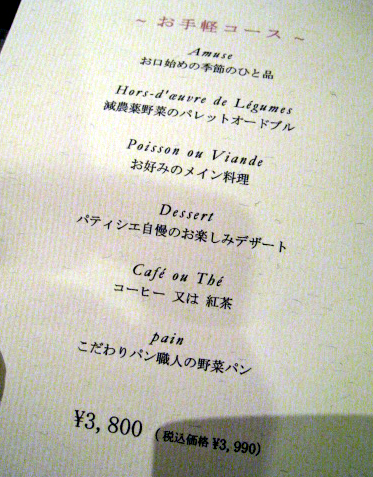 ～ お手軽コース ～
Amuse
お口始めの季節のひと品
Hors-d'œuvre de Légumes
減農薬野菜のパレットオードブル
Poisson ou Viande
お好みのメイン料理
Dessert
パティシエ自慢のお楽しみデザート
Café ou Thé
コーヒー 又は 紅茶
pain
こだわりパン職人の野菜パン
¥3,800 (税込価格 ¥3,990)